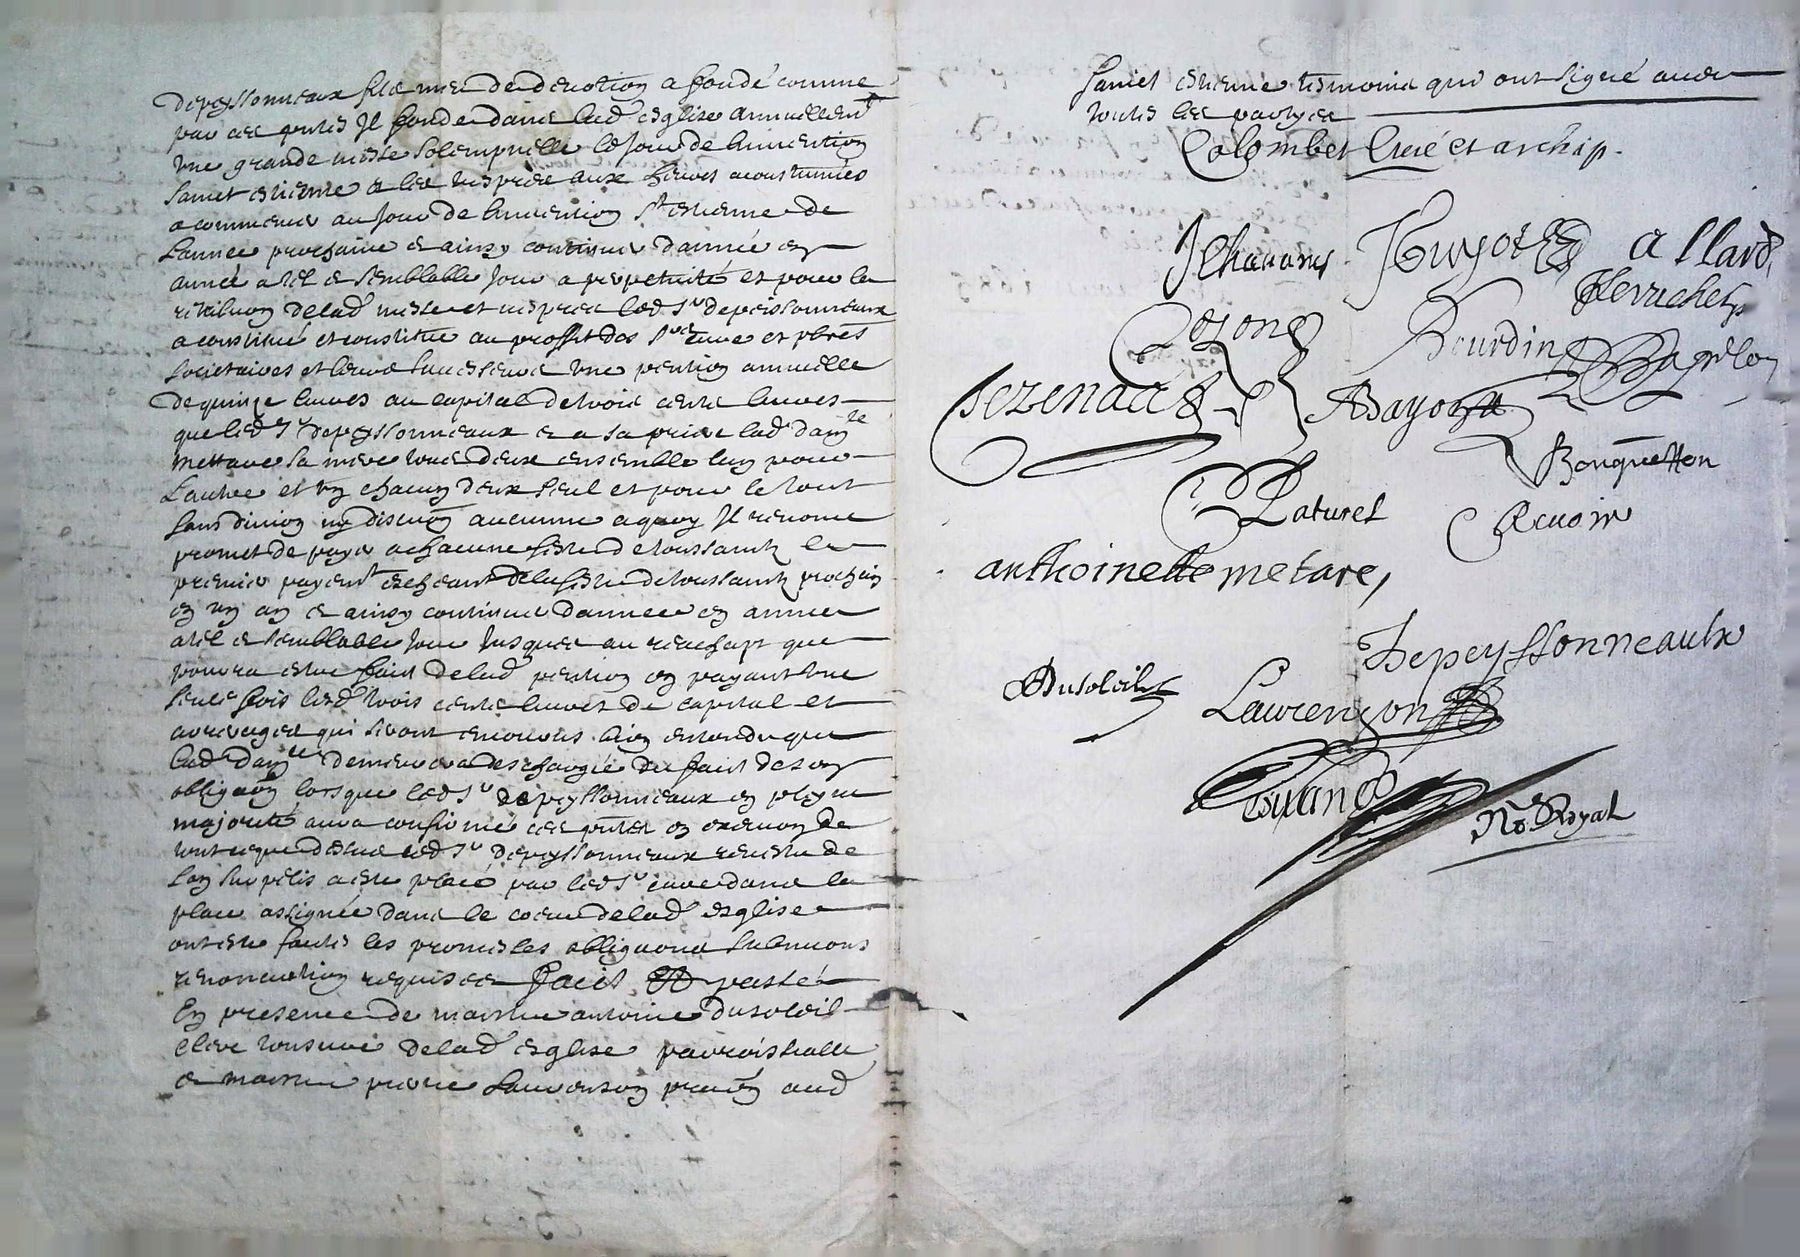 depeyssonneaux filz meu de devotion a fondé comme
par ces pntes Il fonde dans lad esglise annuellemt
une grande messe solempnelle le Jour de linvention
sainct estienne & les vespres aux heures acoustumées
a commencer au Jour de linvention st estienne de
Lannee prochaine & ainsy continuer dannée en
année a tel & semblable Jour a perpetuité et pour la
de lad messe et vespres led sr depeissonneaux
a constitué et constitue au proffit des srs curé et pbres
societaires et leurs successeurs une pention annuelle
de quinze livres au capital de trois cents livres
que led sr depeyssonneaux & a sa priere lad damlle
mettare sa mere tous deux ensemble lun pour
Lautre et un chacun deux seul et pour le tout
sans division ny discution aucune a quoy Il renonce
promet de payer a chacune feste de toussaintz le
premier payemt escheant de la feste de toussaintz prochain
en un an & ainsy continuer dannee en annee
a tel & semblable Jour Jusques au reachapt que
pourra estre faict de lad pention en payant une
seule fois lesd trois cents livres de capital et
arrerages qui seront encourus bien entendu que
lad damlle demeurera deschargée du faict de son
obligaon lorsque led sr depeyssonneaux en pleyne
majorité aura confirmé ces pntes en execuon de
tout ce que dessus led sr depeyssonneaux revestu de
son surpelis a esté placé par led sr curé dans la
place assignée dans le coeur de lad esglise
ont esté faictes les promesses obligaons submions
renonciation requises faict & passé
En presence de maistre antoine dusoleil
clerc tonsuré de lad esglise parroissialle
& maistre pierre Laurenson praticn aud
sainct estienne tesmoins qui ont signé avec
toutes les partyes
Colombet Curé et archip.
JChavanis JGuyot Allard
Pleruchet
Cozon Bourdin Bagillon
Sezenac ABayon
Bouquetton
Paturel Rauoir
anthoinette metare,
Depeyssonneaulx
ADusoleil Laurenzon
Touand
Nore Royal